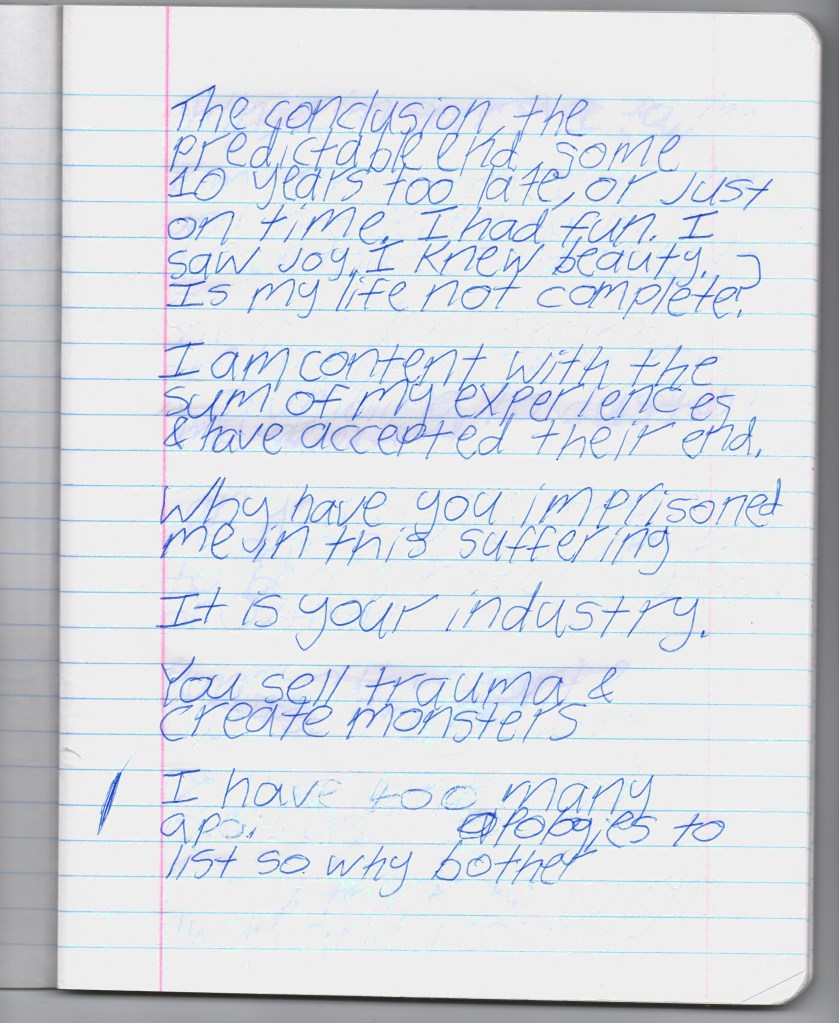 The conclusion, the
predictable end, some
10 years too late, or just
on time. I had fun. I
saw joy. I knew beauty.
Is my life not complete?
I am content with the
sum of my experiences
& have accepted their end.
Why have you imprisoned
me in this suffering
It is your industry.
You sell trauma &
create monsters
I have too many
apo apologies to
list so why bother